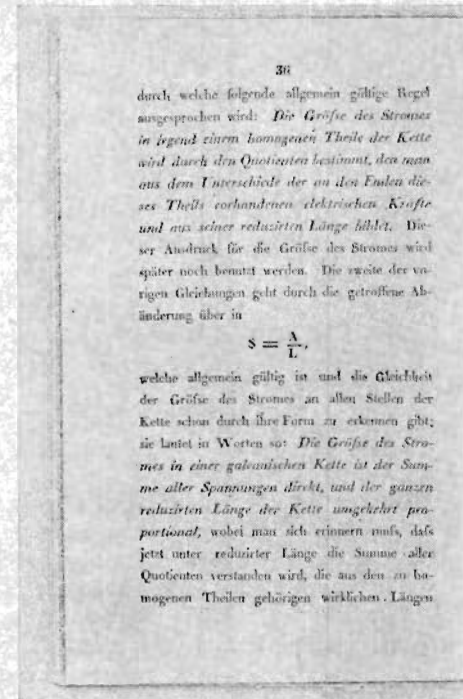 36
durch welche folgende allgemein gültige Regel
ausgesprochen wird: Die Größe des Stromes
in irgend einem homogenen Theile der Kette
wird durch den Quotienten bestimmt, den man
aus dem Unterschiede der an den Enden die-
ses Theils vorhandenen elektrischen Kräfte
und aus seiner reduzirten Länge bildet. Die-
ser Ausdruck für die Größe des Stromes wird
später noch benutzt werden. Die zweite der vo-
rigen Gleichungen geht durch die getroffene Ab-
änderung über in
S = A/L,
welche allgemein gültig ist und die Gleichheit
der Größe des Stromes an allen Stellen der
Kette schon durch ihre Form zu erkennen gibt;
sie lautet in Worten so: Die Größe des Stro-
mes in einer galvanischen Kette ist der Sum-
me aller Spannungen direkt, und der ganzen
reduzirten Länge der Kette umgekehrt pro-
portional, wobei man sich erinnern muß, daß
jetzt unter reduzirter Länge die Summe aller
Quotienten verstanden wird, die aus den zu ho-
mogenen Theilen gehörigen wirklichen Längen